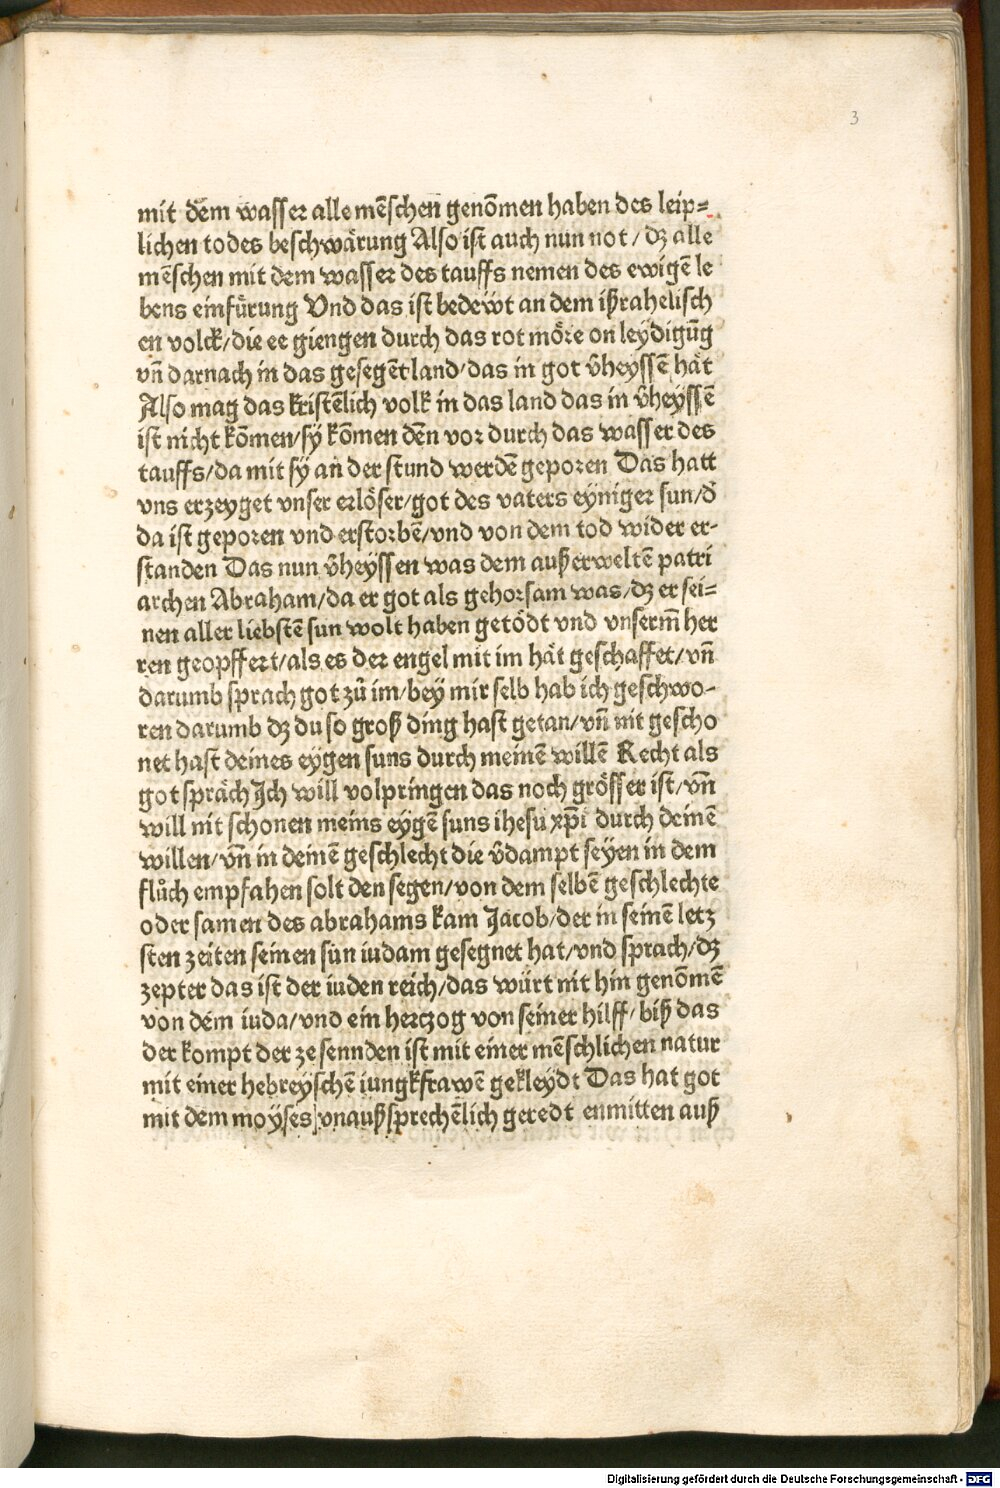 3
mit dem wasser alle mēschen genōmen haben des leip=
lichen todes beschwärung Also ist auch nun not / dꝫ alle
mēschen mit dem wasser des tauffs nemen des ewigē le
bens einfürung Vnd das ist bedeẅt an dem ißrahelisch
en volck/die ee giengen durch das rot möre on leydigūg
vn̄ darnach in das gesegēt land/das in got v̄heyssē hät
Also mag das kristēlich volk in das land das in v̄heyssē
ist nicht kōmen/sÿ kōmen dēn vor durch das wasser des
tauffs/da mit sÿ an der stund werdē geporen Das hatt
vns erzeyget vnser erlöser/got des vaters eyniger sun/d̄
da ist geporen vnd erstorbē/vnd von dem tod wider er-
standen Das nun v̄heyssen was dem außerweltē patri
archen Abraham/da er got als gehorsam was/dꝫ er sei=
nen aller liebstē sun wolt haben getödt vnd vnserm̄ her
ren geopffert/als es der engel mit im hät geschaffet/vn̄
darumb sprach got zů im/bey mir selb hab ich geschwo-
ren darumb dꝫ du so groß ding hast getan/vn̄ nit gescho
net hast deines eygen suns durch meinē willē Recht als
got spräch Ich will volpringen das noch grösser ist/vn̄
will nit schonen meins eygē suns ihesu xp̄i durch deinē
willen/vn̄ in deinē geschlecht die v̄dampt seyen in dem
flůch empfahen solt den segen/von dem selbē geschlechte
oder samen des abrahams kam Jacob/der in seinē letz
sten zeiten seinen sun iudam gesegnet hat/vnd sprach/dꝫ
zepter das ist der iuden reich/das würt nit hin genōmē
von dem iuda/vnd ein hertzog von seiner hilff/biß das
der kompt der ze sennden ist mit einer mēschlichen natur
mit einer hebreyschē iungkfrawē gekleydt Das hat got
mit dem moyses vnaußsprechēlich geredt enmitten auß
Digitalisierung gefördert durch die Deutsche Forschungsgemeinschaft - DFG